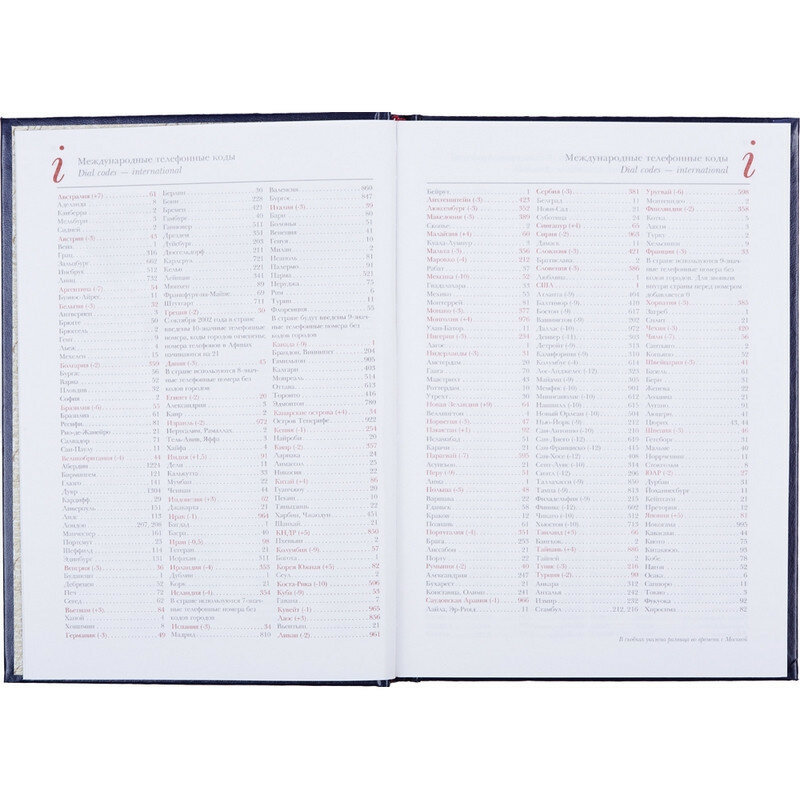 Международные телефонные коды
Dial codes — international
Австралия (+7) 61
Аделаида 8
Канберра 2
Мельбурн 3
Сидней 2
Австрия (-3) 43
Вена 1
Грац 316
Зальцбург 662
Инсбрук 512
Линц
Аргентина (-7) 54
Буэнос-Айрес 11
Бельгия (-3) 32
Антверпен 3
Брюгге 50
Брюссель 2
Гент
Льеж 4
Мехелен 15
Болгария (-2) 359
Бургас
Варна 52
Пловдив 32
София 2
Бразилия (-6) 55
Бразилиа
Ресифи 81
Рио-де-Жанейро 21
Салвадор 71
Сан-Паулу 11
Великобритания (-4) 44
Абердин 1224
Бирмингем 121
Глазго 141
Дувр 1304
Кардифф
Ливерпуль 151
Лидс 113
Лондон 207, 208
Манчестер 161
Портсмут 23
Шеффилд 114
Эдинбург 131
Венгрия (-3) 36
Будапешт 1
Дебрецен 52
Печ 72
Сегед 62
Вьетнам (+3) 84
Ханой 4
Хошимин 8
Германия (-3) 49
Берлин 30
Бонн 228
Бремен 421
Гамбург 40
Ганновер 511
Дрезден 351
Дуйсбург 203
Дюссельдорф 211
Карлсруэ 721
Кельн 221
Лейпциг 341
Мюнхен 89
Франкфурт-на-Майне 69
Штутгарт 711
Греция (-2) 30
С октября 2002 года в стране
введены 10-значные телефонные
номера, коды городов отменены,
номера телефонов в Афинах
начинаются на 21
Дания (-3) 45
В стране используются 8-знач-
ные телефонные номера без
кодов городов
Египет (-2) 20
Александрия 3
Каир 2
Израиль (-2) 972
Иерусалим, Рамаллах 2
Тель-Авив, Яффа 3
Хайфа 4
Индия (+1,5) 91
Дели 11
Калькутта 33
Мумбаи 22
Ченнаи 44
Индонезия (+3) 62
Джакарта 21
Ирак (-1) 964
Багдад 1
Басра 40
Иран (-0,5) 98
Тегеран 21
Исфахан 311
Ирландия (-4) 353
Дублин 1
Корк 21
Исландия (-4) 354
В стране используются 7-знач-
ные телефонные номера без
кодов городов
Испания (-3) 34
Мадрид 810
Валенсия 860
Бургос 847
Италия (-3) 39
Бари 80
Болонья 51
Венеция 41
Генуя 10
Милан 2
Неаполь 81
Палермо 91
Парма 521
Перуджа 75
Рим 6
Турин 11
Флоренция 55
В стране будут введены 9-знач-
ные телефонные номера без
кодов городов
Канада (-9) 1
Брандон, Виннипег 204
Гамильтон 905
Калгари 403
Монреаль 514
Оттава 613
Торонто 416
Эдмонтон 780
Канарские острова (+4) 34
Остров Тенерифе 922
Кения (-1) 254
Найроби 20
Кипр (-2) 357
Ларнака 24
Лимасол 25
Никосия 22
Китай (+4) 86
Гуангжоу 20
Пекин 10
Тяньцзинь 22
Харбин, Чжаодун 451
Шанхай 21
КНДР (+5) 850
Пхеньян 2
Колумбия (-9) 57
Богота 1
Корея Южная (+5) 82
Сеул 2
Коста-Рика (-10) 506
Куба (-9) 53
Гавана 7
Кувейт (-1) 965
Лаос (+3) 856
Вьентьян 21
Ливан (-2) 961
Международные телефонные коды
Dial codes — international
Бейрут 1
Лихтенштейн (-3) 423
Люксембург (-3) 352
Македония (-3) 389
Скопье 2
Малайзия (+4) 60
Куала-Лумпур 3
Мальта (-3) 356
Марокко (-4) 212
Рабат 37
Мексика (-10) 52
Гвадалахара 33
Мехико 55
Монтеррей 81
Монако (-3) 377
Монголия (+4) 976
Улан-Батор 11
Нигерия (-3) 234
Лагос 1
Нидерланды (-3) 31
Амстердам 20
Гаага 70
Маастрихт 43
Роттердам 10
Утрехт 30
Новая Зеландия (+9) 64
Веллингтон 4
Норвегия (-3) 47
Пакистан (+1) 92
Исламабад 51
Карачи 21
Парагвай (-7) 595
Асунсьон 21
Перу (-9) 51
Лима 1
Польша (-3) 48
Варшава 22
Гданьск 58
Краков 12
Познань 61
Португалия (-4) 351
Брага 253
Лиссабон 21
Порту 22
Румыния (-2) 40
Александрия 247
Бухарест 21
Констанца 241
Саудовская Аравия (-1) 966
Лайла, Эр-Рияд 11
Сербия (-3) 381
Белград 11
Нови-Сад 21
Суботица 24
Сингапур (+4) 65
Сирия (-2) 963
Дамаск 11
Словакия (-3) 421
Братислава 2
Словения (-3) 386
Любляна 1
США 1
Атланта (-9) 404
Балтимор (-9) 410
Бостон (-9) 617
Вашингтон (-9) 202
Даллас (-10) 972
Денвер (-11) 303
Детройт (-9) 313
Калифорния (-9)
Лос-Анджелес (-12) 323
Майами (-9) 305
Мемфис (-10) 901
Миннеаполис (-10) 612
Нашвилл (-10) 615
Новый Орлеан (-10) 504
Нью-Йорк (-9) 212
Сан-Антонио (-10) 210
Сан-Диего (-12) 619
Сан-Франциско (-12) 415
Сан-Хосе (-12) 408
Сент-Луис (-10) 314
Таллахасси (-9) 850
Тампа (-9) 813
Филадельфия (-9) 215
Финикс (-11) 602
Цинциннати (-9) 513
Чикаго (-10) 312
Хьюстон (-10) 713
Таиланд (+3) 66
Бангкок 2
Тайвань (+4) 886
Тайпей 2
Тунис (-3) 216
Турция (-2) 90
Анкара 312
Анталья 242
Измир 232
Стамбул 212, 216
Уругвай (-6) 598
Монтевидео 2
Финляндия (-2) 358
Котка 5
Лахти 3
Турку 2
Хельсинки 9
Франция (-3) 33
В стране используются 9-знач-
ные телефонные номера без
кодов городов. Для звонков
внутри страны перед номером
добавляется 0
Хорватия (-3) 385
Загреб 1
Сплит 21
Чехия (-3) 420
Чили (-7) 56
Сантьяго 2
Копьяпо 52
Швейцария (-3) 41
Базель 61
Берн 31
Женева 22
Лозанна 21
Лугано 91
Люцерн 41
Цюрих 43, 44
Швеция (-3) 46
Гетеборг 31
Мальме 40
Норрчепинг 11
Стокгольм 8
ЮАР (-2) 27
Дурбан 31
Йоханнесбург 11
Кейптаун 21
Претория 12
Япония (+5) 81
Иокогама 45
Кавасаки 44
Киото 75
Китакюсю 93
Кобе 78
Нагоя 52
Осака 6
Саппоро 11
Токио 3
Фукуока 92
Хиросима 82
В скобках указана разница во времени с Москвой